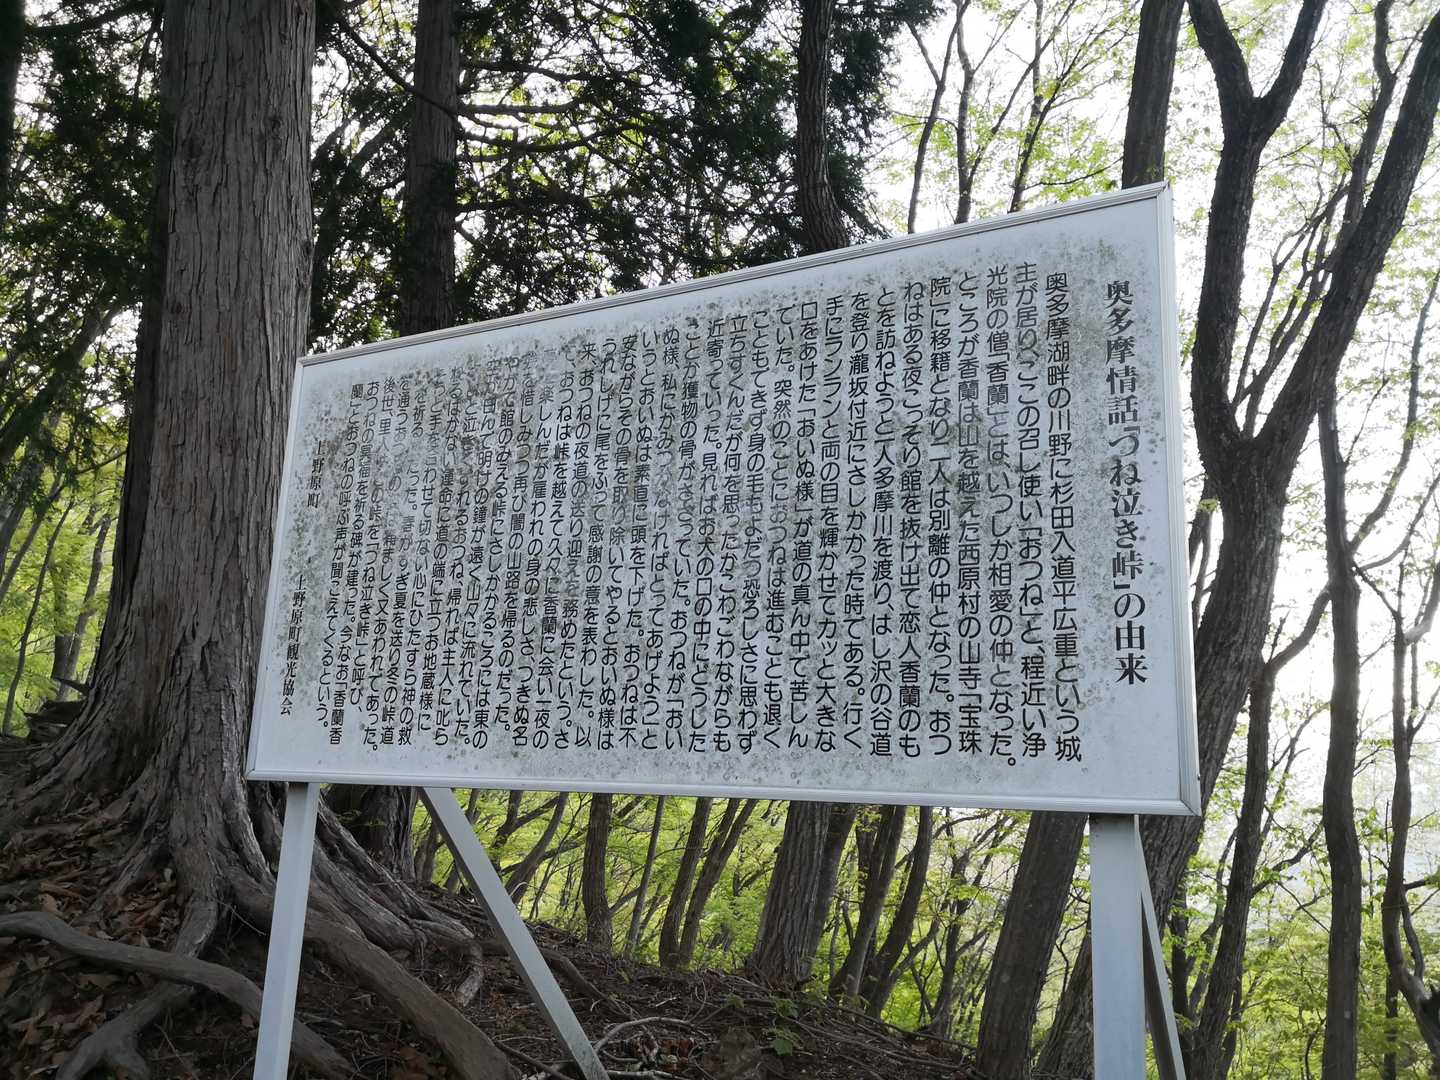 奥多摩情話「つね泣き峠」の由来
奥多摩湖畔の川野に杉田入道平広重という城
主が居り、ここの召し使い「おつね」と、程近い浄
光院の僧「香蘭」とは、いつしか相愛の仲となった。
ところが香蘭は山を越えた西原村の山寺「宝珠
院」に移籍となり二人は別離の仲となった。おつ
ねはある夜こっそり館を抜け出て恋人香蘭のも
とを訪ねようと一人多摩川を渡り、はし沢の谷道
を登り瀧坂付近にさしかかった時である。行く
手にランランと両の目を輝かせてカッと大きな
口をあけた「おいぬ様」が道の真ん中で苦しん
でいた。突然のことにおつねは進むことも退く
こともできず身の毛もよだつ恐ろしさに思わず
立ちすくんだが何を思ったかこわごわながらも
近寄っていった。見ればお犬の口の中にどうした
ことか獲物の骨がささっていた。おつねが「おい
ぬ様、私にかみつかなければとってあげよう」と
いうとおいぬは素直に頭を下げた。おつねは不
安ながらその骨を取り除いてやるとおいぬ様は
うれしげに尾をふって感謝の意を表わした。以
来、おつねの夜道の送り迎えを務めたという。さ
て、おつねは峠を越えて久々に香蘭に会い一夜の
楽しんだが雇われの身の悲しさ、つきぬ名
を惜しみつつ再び闇の山路を帰るのだった。
やがて館のみえる峠にさしかかるころには東の
空が白んで明けの鐘が遠く山々に流れていた。
と泣きくずれるおつね、帰れば主人に叱ら
れるはかない運命に道の端に立つお地蔵様に
そっと手を合わせて切ない心にひたすら神の救
を祈る った。春がすぎ夏を送り冬の峠道
を通うお 痛ましく又あわれであった。
後世、里人 の峠を「つね泣き峠」と呼び、
おつねの冥福を祈る碑が建った。今なお「香蘭香
蘭」とおつねの呼ぶ声が聞こえてくるという。
上野原町
上野原町観光協会